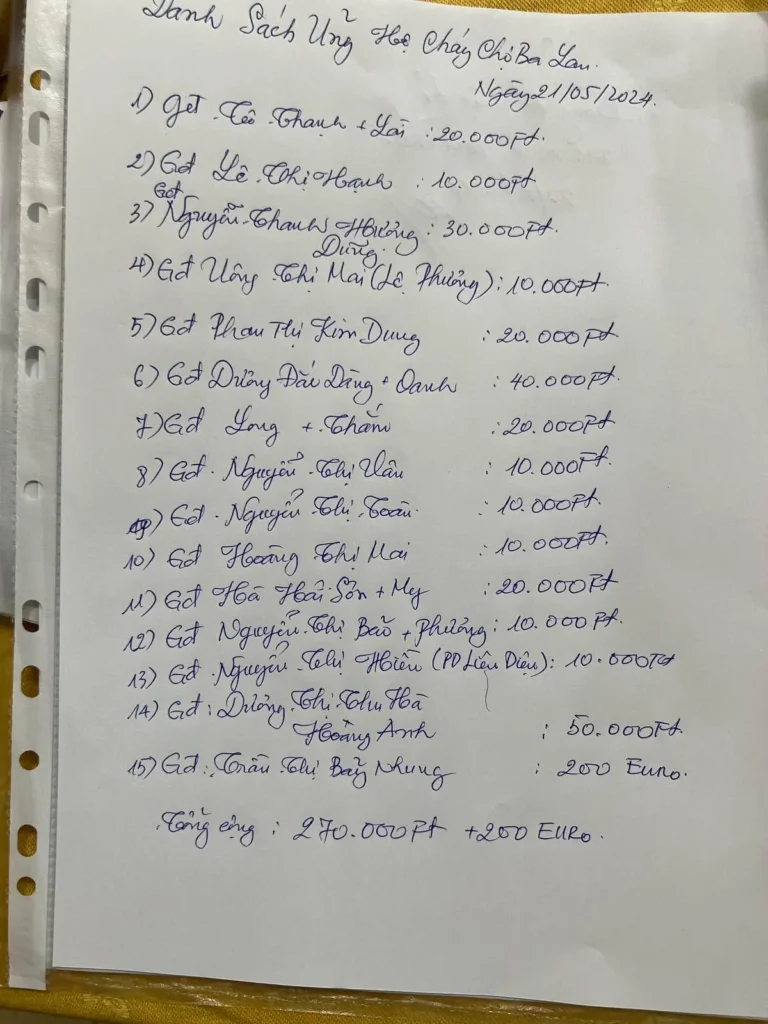 Danh Sách Ủng Hộ Cháy Chợ Ba Lan.
Ngày 21/05/2024.
1) Gđ Tô Thanh + Lài : 20.000Ft.
2) Gđ Lê Thị Hạnh : 10.000Ft
3) Gđ Nguyễn Thanh Hương : 30.000Ft.
Dũng.
4) Gđ Uông Thị Mai (Lê Phương) : 10.000Ft
5) Gđ Phan Thị Kim Dung : 20.000Ft
6) Gđ Dương Đắc Dũng + Oanh : 40.000Ft.
7) Gđ Long + Thắm : 20.000Ft
8) Gđ. Nguyễn Thị Vân : 10.000Ft.
9) Gđ. Nguyễn Thị Toàn. : 10.000Ft.
10) Gđ Hoàng Thị Mai : 10.000Ft.
11) Gđ Hà Hải Sơn + My : 20.000Ft
12) Gđ Nguyễn Thị Bảo + Phương : 10.000Ft.
13) Gđ. Nguyễn Thị Hiền (PD Liên Diệu) : 10.000Ft
14) Gđ : Dương Thị Thu Hà
Hoàng Anh : 50.000Ft.
15) Gđ : Trần Thị Bảy Nhung : 200 Euro.
Tổng cộng : 270.000Ft + 200 EURO.